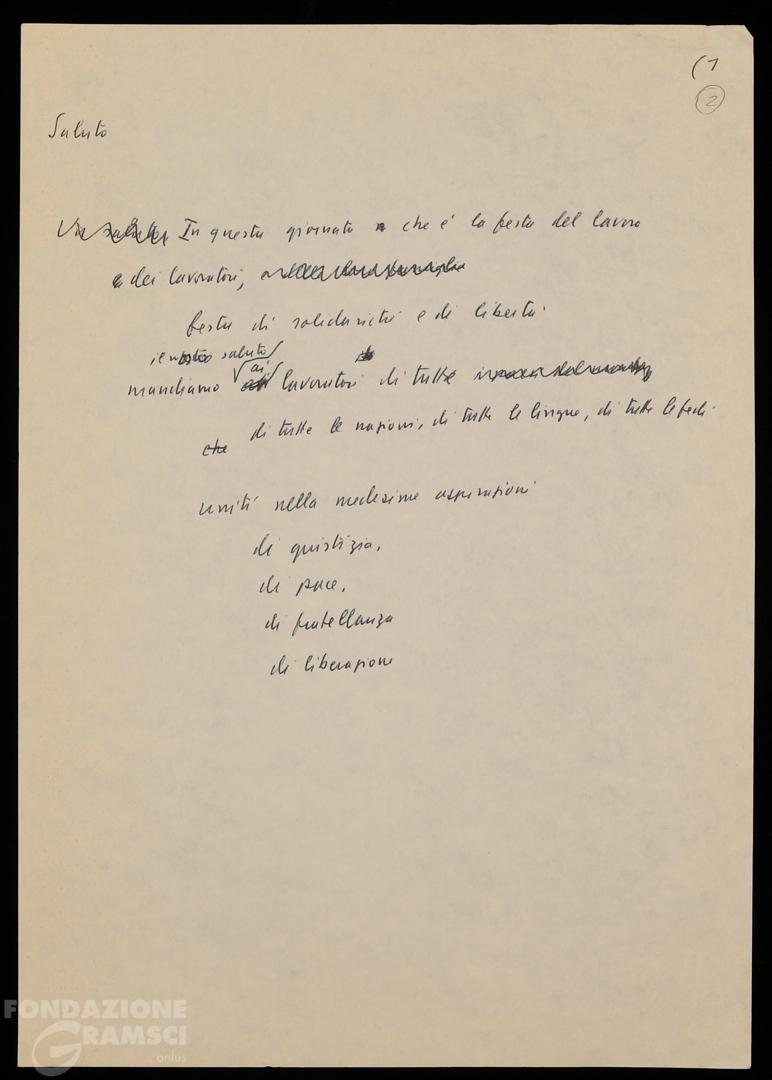 (1
2
Saluto
In questa giornata che è la festa del lavoro
e dei lavoratori,
festa di solidarietà e di libertà
il nostro saluto
mandiamo ai lavoratori di tutte
che di tutte le nazioni, di tutte le lingue, di tutte le fedi.
uniti nella medesime aspirazioni
di giustizia,
di pace,
di fratellanza
di liberazione
FONDAZIONE
GRAMSCI
onlus